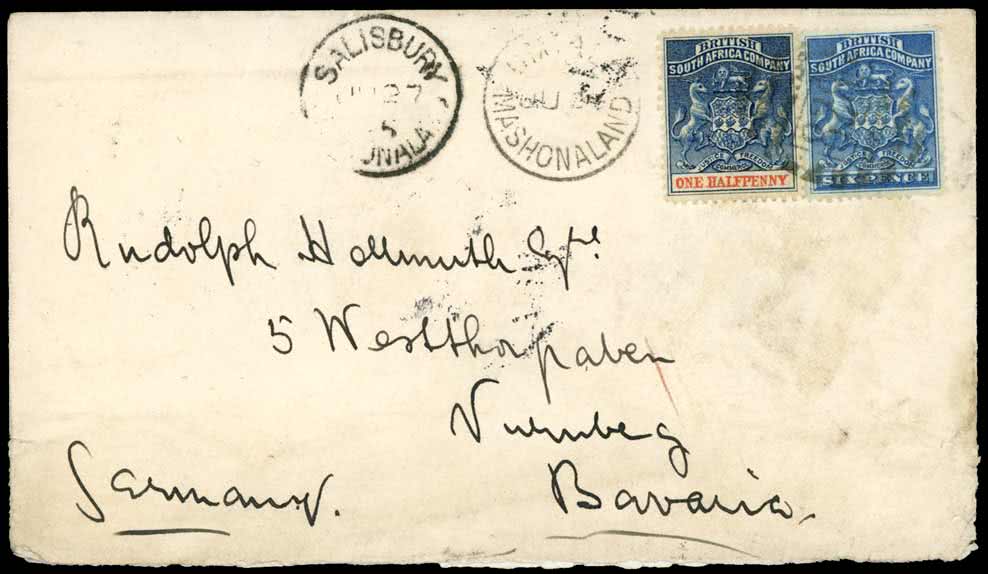 SALISBURY
JU 27
5
ONALA
MASHONALAND
BRITISH
SOUTH AFRICA COMPANY
JUSTICE FREEDOM
COMMERCE
ONE HALFPENNY
BRITISH
SOUTH AFRICA COMPANY
JUSTICE FREEDOM
COMMERCE
SIXPENCE
Rudolph Hollmuth Esqre
5 Westthorpaben
Nurnberg
Germany.
Bavaria.